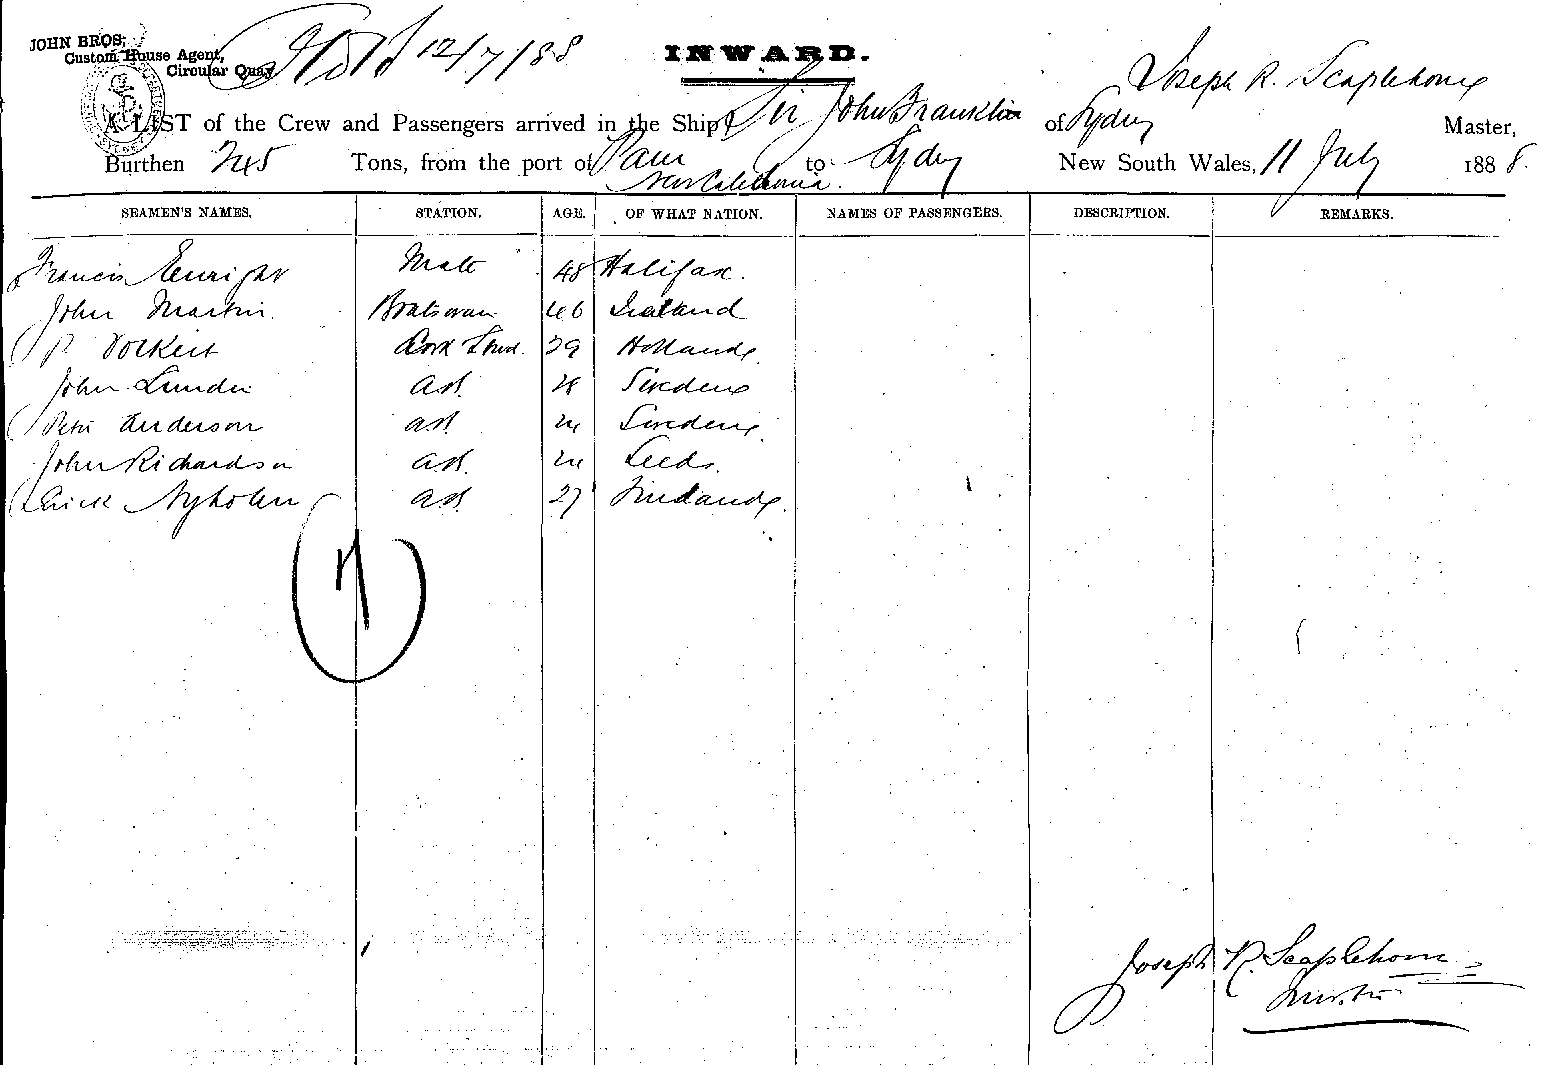 JOHN BROS,
Custom House Agent,
Circular Quay
12/7/88
INWARD.
Joseph R. Scaplehorne
A LIST of the Crew and Passengers arrived in the Ship Sir John Franklin of Sydney Master,
Burthen 245 Tons, from the port of Pam New Caledonia. to Sydney New South Wales, 11 July 1888.
SEAMEN'S NAMES. STATION. AGE. OF WHAT NATION. NAMES OF PASSENGERS. DESCRIPTION. REMARKS.
Francis Enright Mate 48 Halifax.
John Martin. Boatswain 46
P. Volkert Cook Stwd. 29 Holland
John Lunde AB. 28 Sweden
Peter Anderson AB 24 Sweden
John Richardson AB. 24 Leeds.
Erick Nyholm AB. 27 Finland
7
Joseph R. Scaplehorne
Master